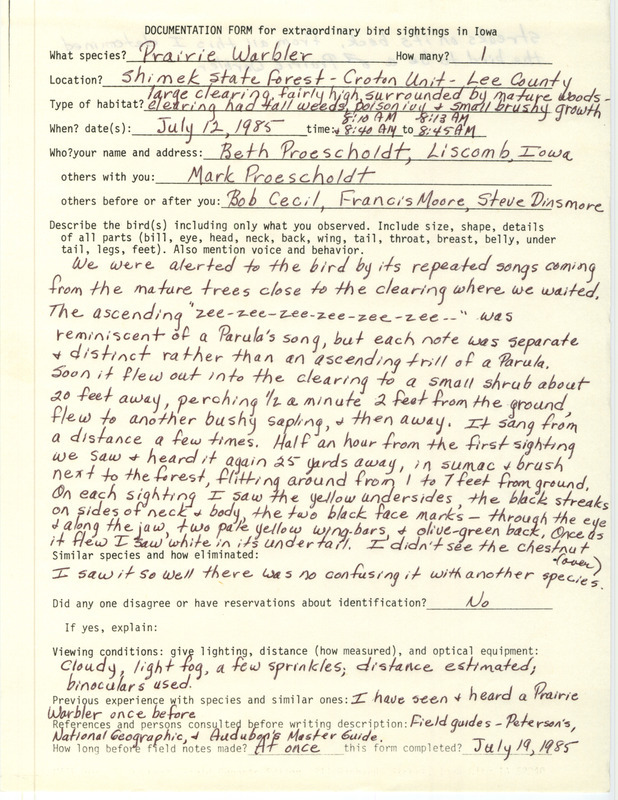 DOCUMENTATION FORM for extraordinary bird sightings in Iowa
What species? Prairie Warbler How many? 1
Location? Shimek State Forest - Croton Unit - Lee County
large clearing, fairly high, surrounded by mature woods -
Type of habitat? clearing had tall weeds, poison ivy & small brushy growth
8:10 AM 8:13 AM
When? date(s): July 12, 1985 time: & 8:40 AM to 8:45 AM
Who? your name and address: Beth Proescholdt, Liscomb, Iowa
others with you: Mark Proescholdt
others before or after you: Bob Cecil, Francis Moore, Steve Dinsmore
Describe the bird(s) including only what you observed. Include size, shape, details
of all parts (bill, eye, head, neck, back, wing, tail, throat, breast, belly, under
tail, legs, feet). Also mention voice and behavior.
We were alerted to the bird by its repeated songs coming
from the mature trees close to the clearing where we waited.
The ascending "zee-zee-zee-zee-zee-zee--" was
reminiscent of a Parula's song, but each note was separate
& distinct rather than an ascending trill of a Parula.
Soon it flew out into the clearing to a small shrub about
20 feet away, perching 1/2 a minute 2 feet from the ground,
flew to another bushy sapling, & then away. It sang from
a distance a few times. Half an hour from the first sighting
we saw & heard it again 25 yards away, in sumac & brush
next to the forest, flitting around from 1 to 7 feet from ground.
On each sighting I saw the yellow undersides, the black streaks
on sides of neck & body, the two black face marks - through the eye
& along the jaw, two pale yellow wing-bars, & olive-green back. Once as
it flew I saw white in its undertail. I didn't see the chestnut
(over)
Similar species and how eliminated:
I saw it so well there was no confusing it with another species.
Did any one disagree or have reservations about identification? No
If yes, explain:
Viewing conditions: give lighting, distance (how measured), and optical equipment:
Cloudy, light fog, a few sprinkles; distance estimated;
binoculars used.
Previous experience with species and similar ones: I have seen & heard a Prairie
Warbler once before
References and persons consulted before writing description: Field guides - Peterson's,
National Geographic, & Audubon's Master Guide.
How long before field notes made? At once this form completed? July 19, 1985